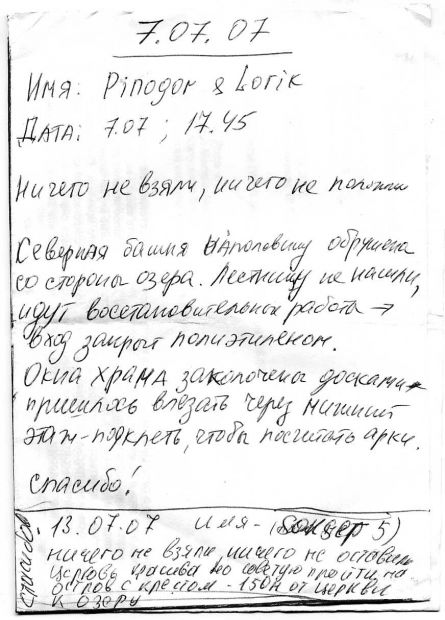 7.07.07
Имя: Pinogor & Lorik
Дата: 7.07 ; 17.45
Ничего не взяли, ничего не положили
Северная башня наполовину обрушена
со стороны озера. Лестницу не нашли,
идут восстановительных работа →
вход закрыт полиэтиленом.
Окна храма заколочены досками
пришлось влезать через нижний
этаж-подклеть, чтобы посчитать арки.
Спасибо!
13.07.07 имя - 5)
ничего не взяли, ничего не оставили
церковь красива но советую пройти на
остров с крестом - 150м от церкви
к озеру
спасибо